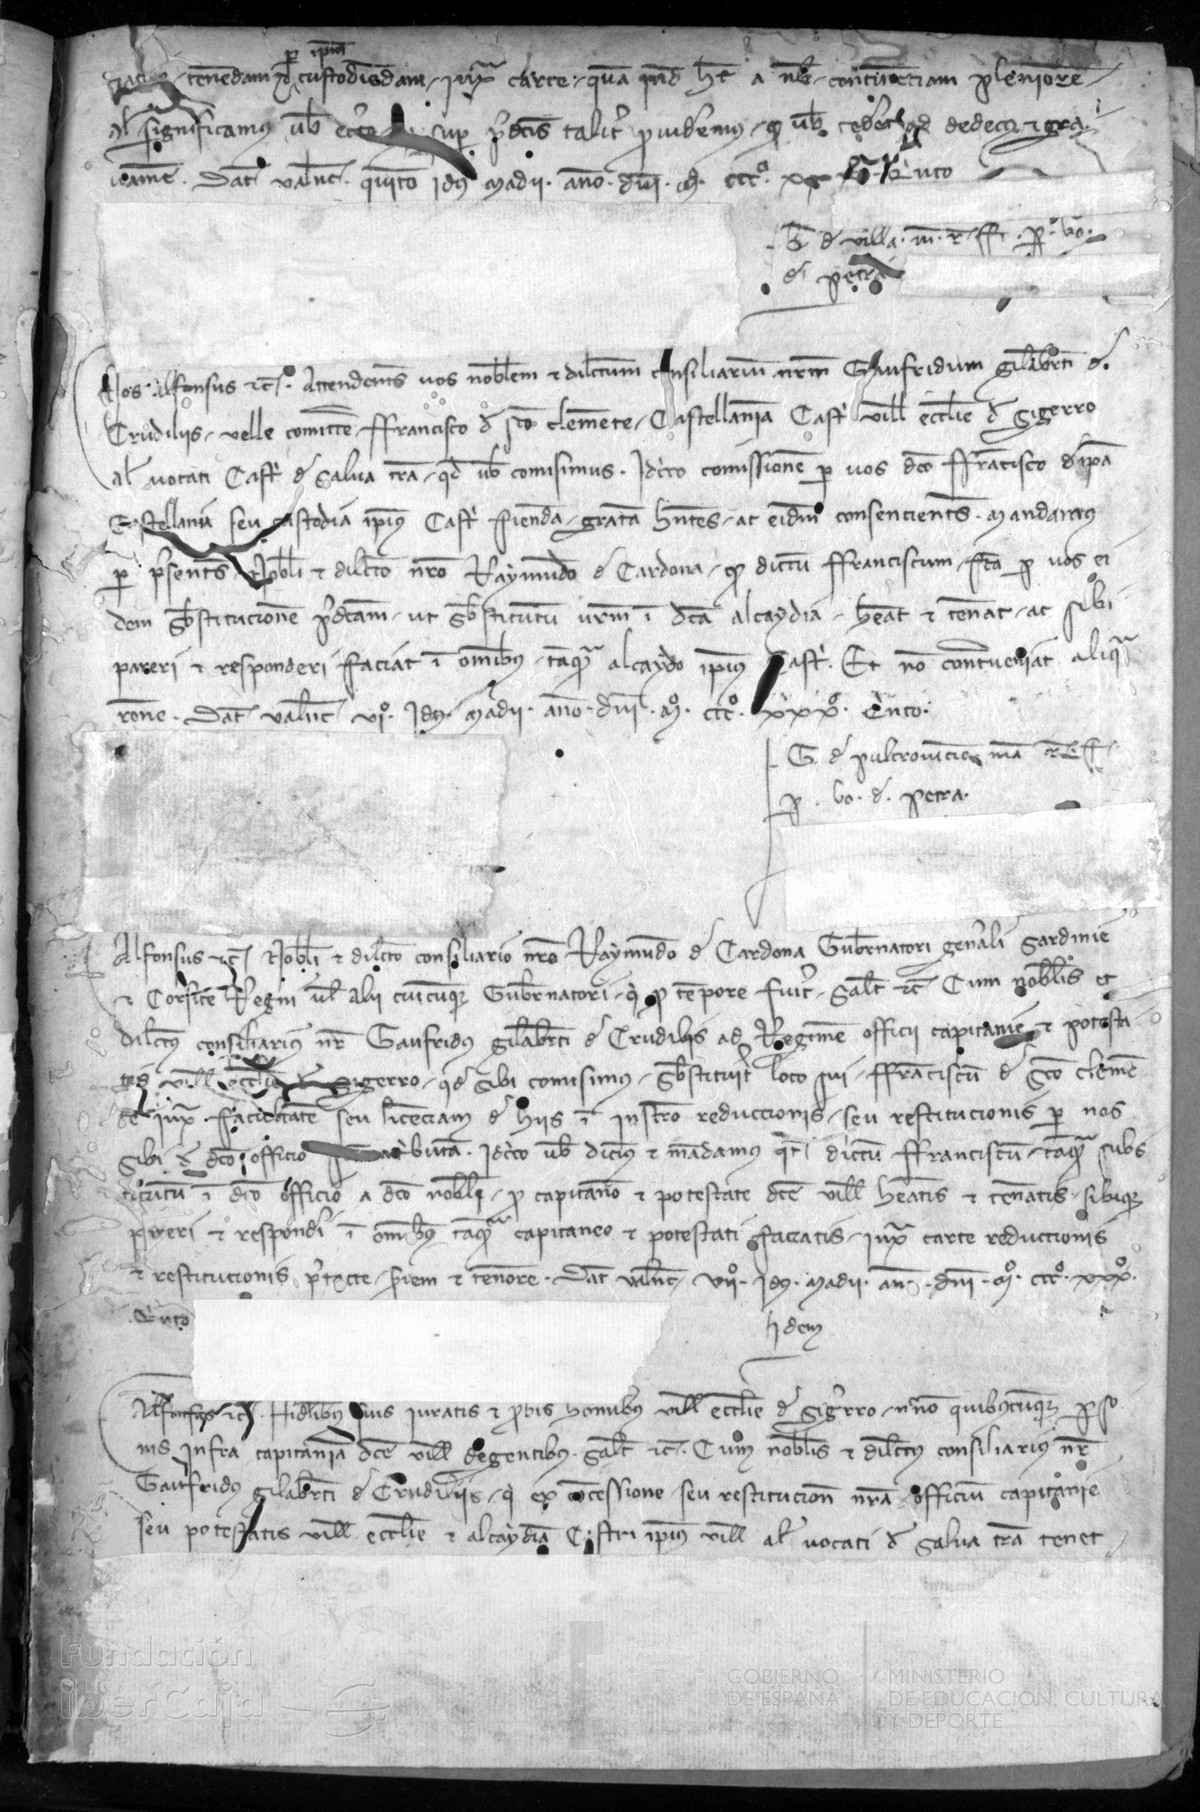 tenendam et custodiendam per ipm iuxa carte quam inde het a nob continenciam pleniorem
Al significamus ub sup pdcis talit puidem9 q ub cedet ad dedec9 et gra
uamen. Dat Valnc quinto Id9 Madii. ano. dni. M. CCC°.
G de villa. m. r. ff. p. bo.
de petra
Nos Alfonsus etc. Attendentes uos noblem et dilctum consiliarium nrm Gaufridum gilabrti de
Crudiliis, velle comitte ffrancisco de sco clemente, Castellaniam Castr ville ecclie de Sigerro
al uocati Castr de Salua tra, qd ub comisimus. Idcirco comissione p uos dco ffrancisco de ipa
Castellania seu custodia ipius Castr fienda, gratam hntes, ac eidm consencientes. Mandamus
p psentes Nobli et dilcto nro Raymundo de Cardona, q dictu ffranciscum, fca p uos ei
dem sbstitucione pdcam, ut sbstitutu urm i dca alcaydia, heat et teneat, ac sibi
pareri et responderi faciat i omibus, taqa alcaydo ipius Castr. Et no contraueniat aliqa
rone. Dat Valnc VI° Id9 Madii. ano. dni. M°. CCC°. XXX°.
G. de pulcrouicino ma
p. bo. de. petra.
Alfonsus etc Nobli et dilcto consiliario nro Raymundo de Cardona Gubrnatori genali Sardinie
et Corsice Regni ul alii cuicumq Gubrnatori, q p tempore fuit, Salt etc Cum noblis et
dilctus consiliarius nr Gaufridus gilabrti de Crudiliis ad Regimen officii capitanie et potesta
tis ville ecclie de Sigerro, qd sibi comisimus, sbstituit loco sui, ffranciscu de sco clemen
te iuxa facultate seu licenciam de hiis i instro reduccionis, seu restitucionis p nos
sibi de dco officio attributa. Idcirco ub dicim9 et madamus qt dictu ffranciscu, taqa subs
titutu i dco officio a dco nobli, p capitano et potestate dce ville heatis et teneatis, sibiq
pareri et responderi i omibus taqa capitaneo et potestati faciatis, iuxa carte reduccionis
et restitucionis ptxcte, siem et tenore. Dat Valnc VII° Id9. Madii. an. dni. M°. CCC°. XXX°.
Idem
Alfonsus etc. Fidelibus suis iuratis et pbis hominibus ville ecclie de Sigerro, nno quibuscumq pso
nis infra capitaniam dce ville degentibus. Salt etc. Cum noblis et dilctus consiliarius nr
Gaufridus gilabrti de Crudiliis, q ex concessione seu restitucion nra, officiu capitanie
seu potestatis ville ecclie et alcaydia Castri ipius ville al uocati de Salua tra tenet
Fundación
iberCaja
GOBIERNO
DE ESPAÑA
MINISTERIO
DE EDUCACIÓN, CULTURA
Y DEPORTE